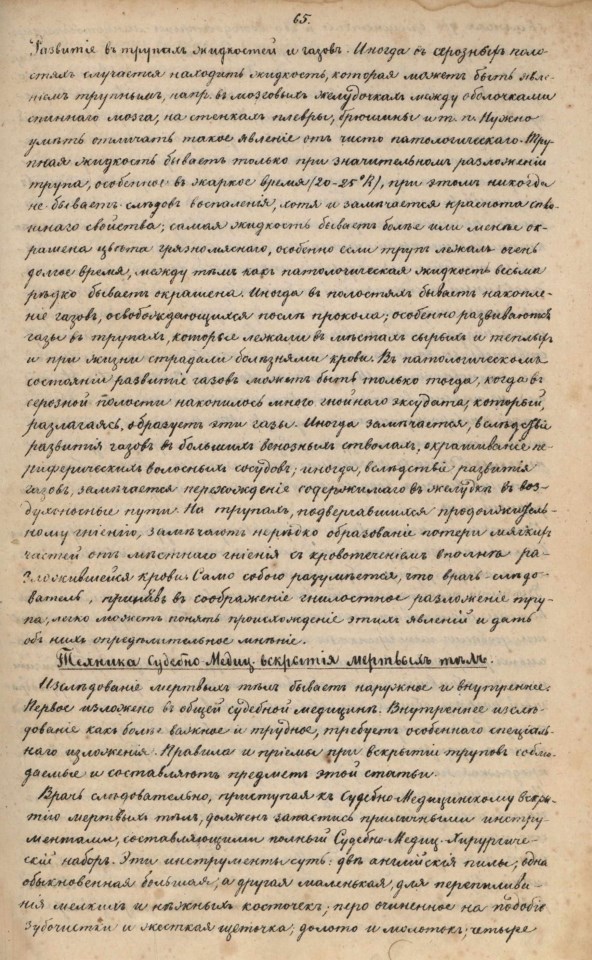 65.
Развитіе въ трупахъ жидкостей и газовъ. Иногда въ серозныхъ поло-
стяхъ случается находить жидкость, которая можетъ быть явле-
ніемъ трупнымъ, напр. въ мозговыхъ желудочкахъ между оболочками
спиннаго мозга, на стенкахъ плевры, брюшины и т. п. Нужно
умѣть отличать такое явленіе отъ чисто патологическаго. Тру-
пная жидкость бываетъ только при значительномъ разложеніи
трупа, особенно въ жаркое время (20-25°R), при этомъ никогда
не бываетъ слѣдовъ воспаленія, хотя и замѣчается краснота
шнаго свойства; самая жидкость бываетъ болѣе или менѣе ок-
рашена цвѣта грязномяснаго, особенно если трупъ лежалъ очень
долгое время, между тѣмъ какъ патологическая жидкость весьма
рѣдко бываетъ окрашена. Иногда въ полостяхъ бываетъ накопле-
ніе газовъ, освобождающихся послѣ прокола; особенно развываются
газы въ трупахъ, которые лежали въ мѣстахъ сырыхъ и теплыхъ
и при жизни страдали болѣзнями крови. Въ патологическомъ
состояніи развитіе газовъ можетъ быть только тогда, когда въ
серозной полости накопилось много гнойнаго эксудата, который,
разлагаясь, образуетъ эти газы. Иногда замѣчается, вслѣдствіе
развитія газовъ въ большихъ венозныхъ стволахъ, окрашиваніе пе-
риферическихъ волосныхъ сосудовъ; иногда, вслѣдствіе развитія
газовъ, замѣчается перехожденіе содержимаго въ желудкѣ въ воз-
духоносные пути. На трупахъ, подвергавшихся продолжитель-
ному гніенію, замѣчаютъ нерѣдко образованіе потери мягкихъ
частей отъ мѣстнаго гніенія съ кровотеченіемъ вполнѣ ра-
зложившейся крови. Само собою разумѣется, что врачъ-слѣдо-
ватель, принявъ въ соображеніе гнилостное разложеніе тру-
па, легко можетъ понять происхожденіе этихъ явленій и дать
объ нихъ опредѣлительное мнѣніе.
Техника Судебно-Медиц. вскрытія мертвыхъ тѣлъ.
Изслѣдованіе мертвыхъ тѣлъ бываетъ наружное и внутреннее.
Первое изложено въ общей судебной медицинѣ. Внутреннее изслѣ-
дованіе какъ болѣе важное и трудное, требуетъ особеннаго спеціаль-
наго изложенія. Правила и пріемы при вскрытіи труповъ соблю-
даемые и составляютъ предметъ этой статьи.
Врачъ слѣдовательно, приступая къ Судебно-Медицинскому вскры-
тію мертвыхъ тѣлъ, долженъ запастись приличными инстру-
ментами, составляющими полный Судебно-Медиц. Хирургиче-
скій наборъ. Эти инструменты суть: двѣ англійскія пилы; одна
обыкновенная большая, а другая маленькая, для перепилива-
нія мелкихъ и нѣжныхъ косточекъ; перо очиненное на подобіе
зубочистки и жесткая щеточка; долото и молотокъ; четыре